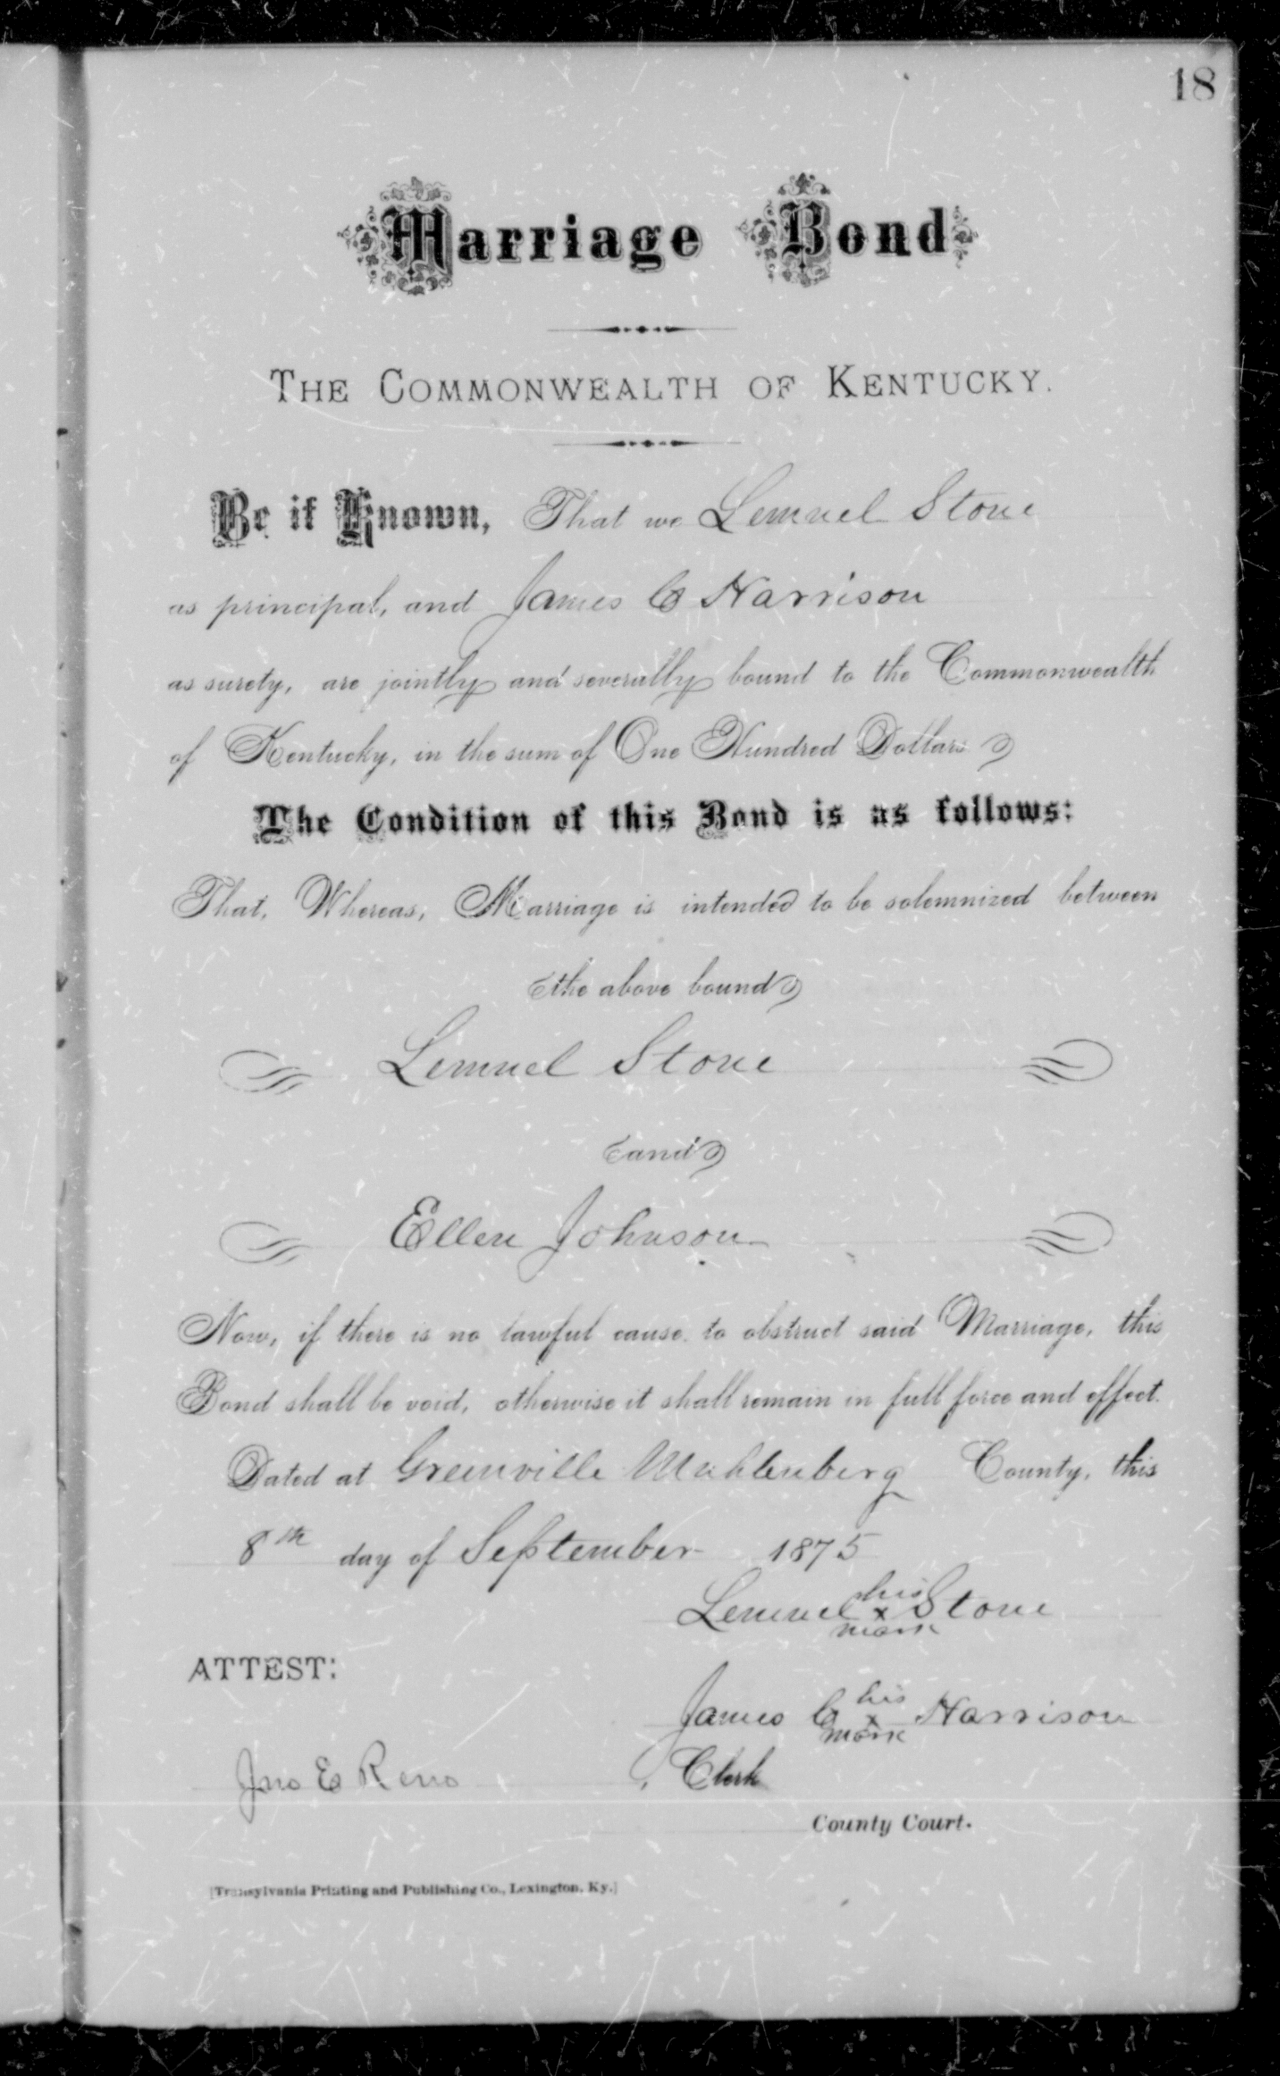 18
Marriage Bond
THE COMMONWEALTH OF KENTUCKY.
Be it Known, That we Lemuel Stone
as principal, and James C Harrison
as surety, are jointly and severally bound to the Commonwealth
of Kentucky, in the sum of One Hundred Dollars
The Condition of this Bond is as follows:
That, Whereas, Marriage is intended to be solemnized between
the above bound
Lemuel Stone
and
Ellen Johnson
Now, if there is no lawful cause to obstruct said Marriage, this
Bond shall be void, otherwise it shall remain in full force and effect.
Dated at Greenville Muhlenberg County, this
8th day of September 1875
his
Lemuel x Stone
mark
ATTEST:
his
James C x Harrison
mark
Jno E Reno, Clerk
County Court.
[Transylvania Printing and Publishing Co., Lexington, Ky.]